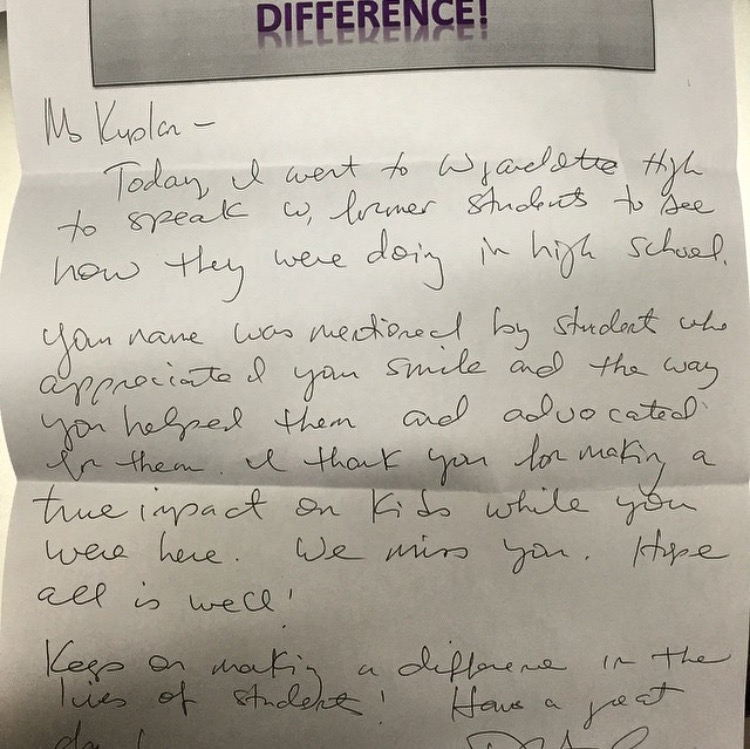 DIFFERENCE!
Ms Kuplan –
Today, I went to Wyandotte High
to speak w/ former students to see
how they were doing in high school.
Your name was mentioned by student who
appreciated your smile and the way
you helped them and advocated
for them. I thank you for making a
true impact on kids while you
were here. We miss you. Hope
all is well!
Keep on making a difference in the
lives of students! Have a great
day!